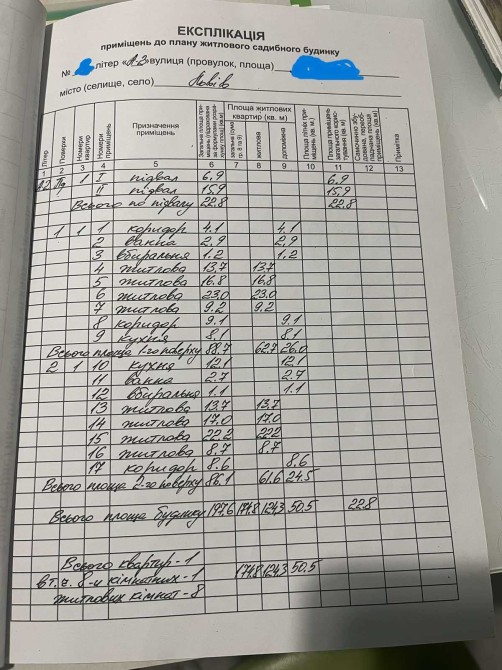 ЕКСПЛІКАЦІЯ
приміщень до плану житлового садибного будинку
№ літер «А-2» вулиця (провулок, площа)
місто (селище, село) Львів
Літер Поверхи Номери квартир Номери приміщень Призначення приміщень Площа житлових квартир (кв. м) загальна (сума гр. 8 та 9) житлова допоміжна Площа літніх приміщень (кв. м) Примітка
1 2 3 4 5 6 7 8 9 10 11 12 13
А2 Пд 1 I підвал 6,9 6,9
II підвал 15,9 15,9
Всього по підвалу 22.8 22.8
1 1 1 коридор 4.1 4.1
2 ванна 2,9 2,9
3 вбиральня 1.2 1.2
4 житлова 13,7 13,7
5 житлова 16.8 16.8
6 житлова 23,0 23,0
7 житлова 9.2 9.2
8 коридор 9.1 9.1
9 кухня 8,1 8,1
Всього площа 1-го поверху 88.7 62.7 26.0
2 1 10 кухня 12,1 12,1
11 ванна 2.7 2.7
12 вбиральня 1.1 1.1
13 житлова 13,7 13,7
14 житлова 17,0 17,0
15 житлова 22.2 22.2
16 житлова 8.7 8.7
17 коридор 8.6 8.6
Всього площа 2-го поверху 86.1 61.6 24.5
Всього площа будинку 197,6 174,8 124,3 50.5 22.8
Всього квартир-1 174,8 124,3 50.5
в т.ч. 8-и кімнатних-1
житлових кімнат-8